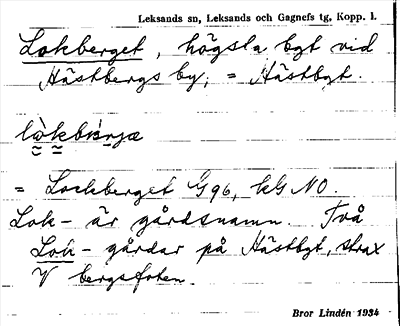 Leksands sn, Leksands och Gagnefs tg, Kopp. l.
Lokberget, högsta bgt vid
Hästbergs by; = Hästbgt.
= Lockberget G 96, kG NO.
Lok- är gårdsnamn. Två
Lok- gårdar på Hästbgt, strax
V bergsfoten.
Bror Lindén 1934